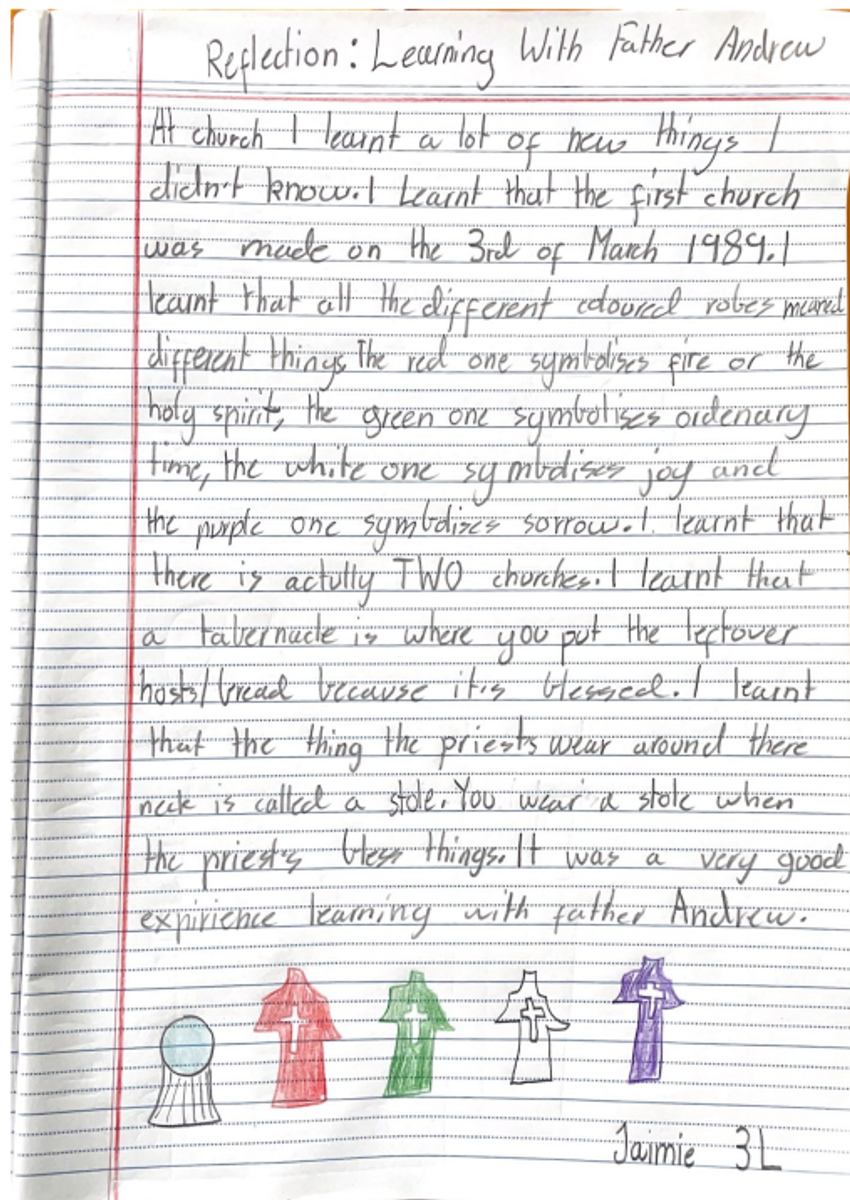 Reflection: Learning With Father Andrew
At church I learnt a lot of new things I
didn't know. I Learnt that the first church
was made on the 3rd of March 1989. I
learnt that all the different coloured robes meaned
different things. The red one symbolises fire or the
holy spirit, the green one symbolises ordenary
time, the white one symbolises joy and
the purple one symbolises sorrow. I learnt that
there is actully TWO churches. I learnt that
a tabernacle is where you put the leftover
hosts/bread because it is blessed. I learnt
that the thing the priests wear around there
neck is called a stole. You wear a stole when
the priests bless things. It was a very good
expirience learning with father Andrew.
Jaimie 3L